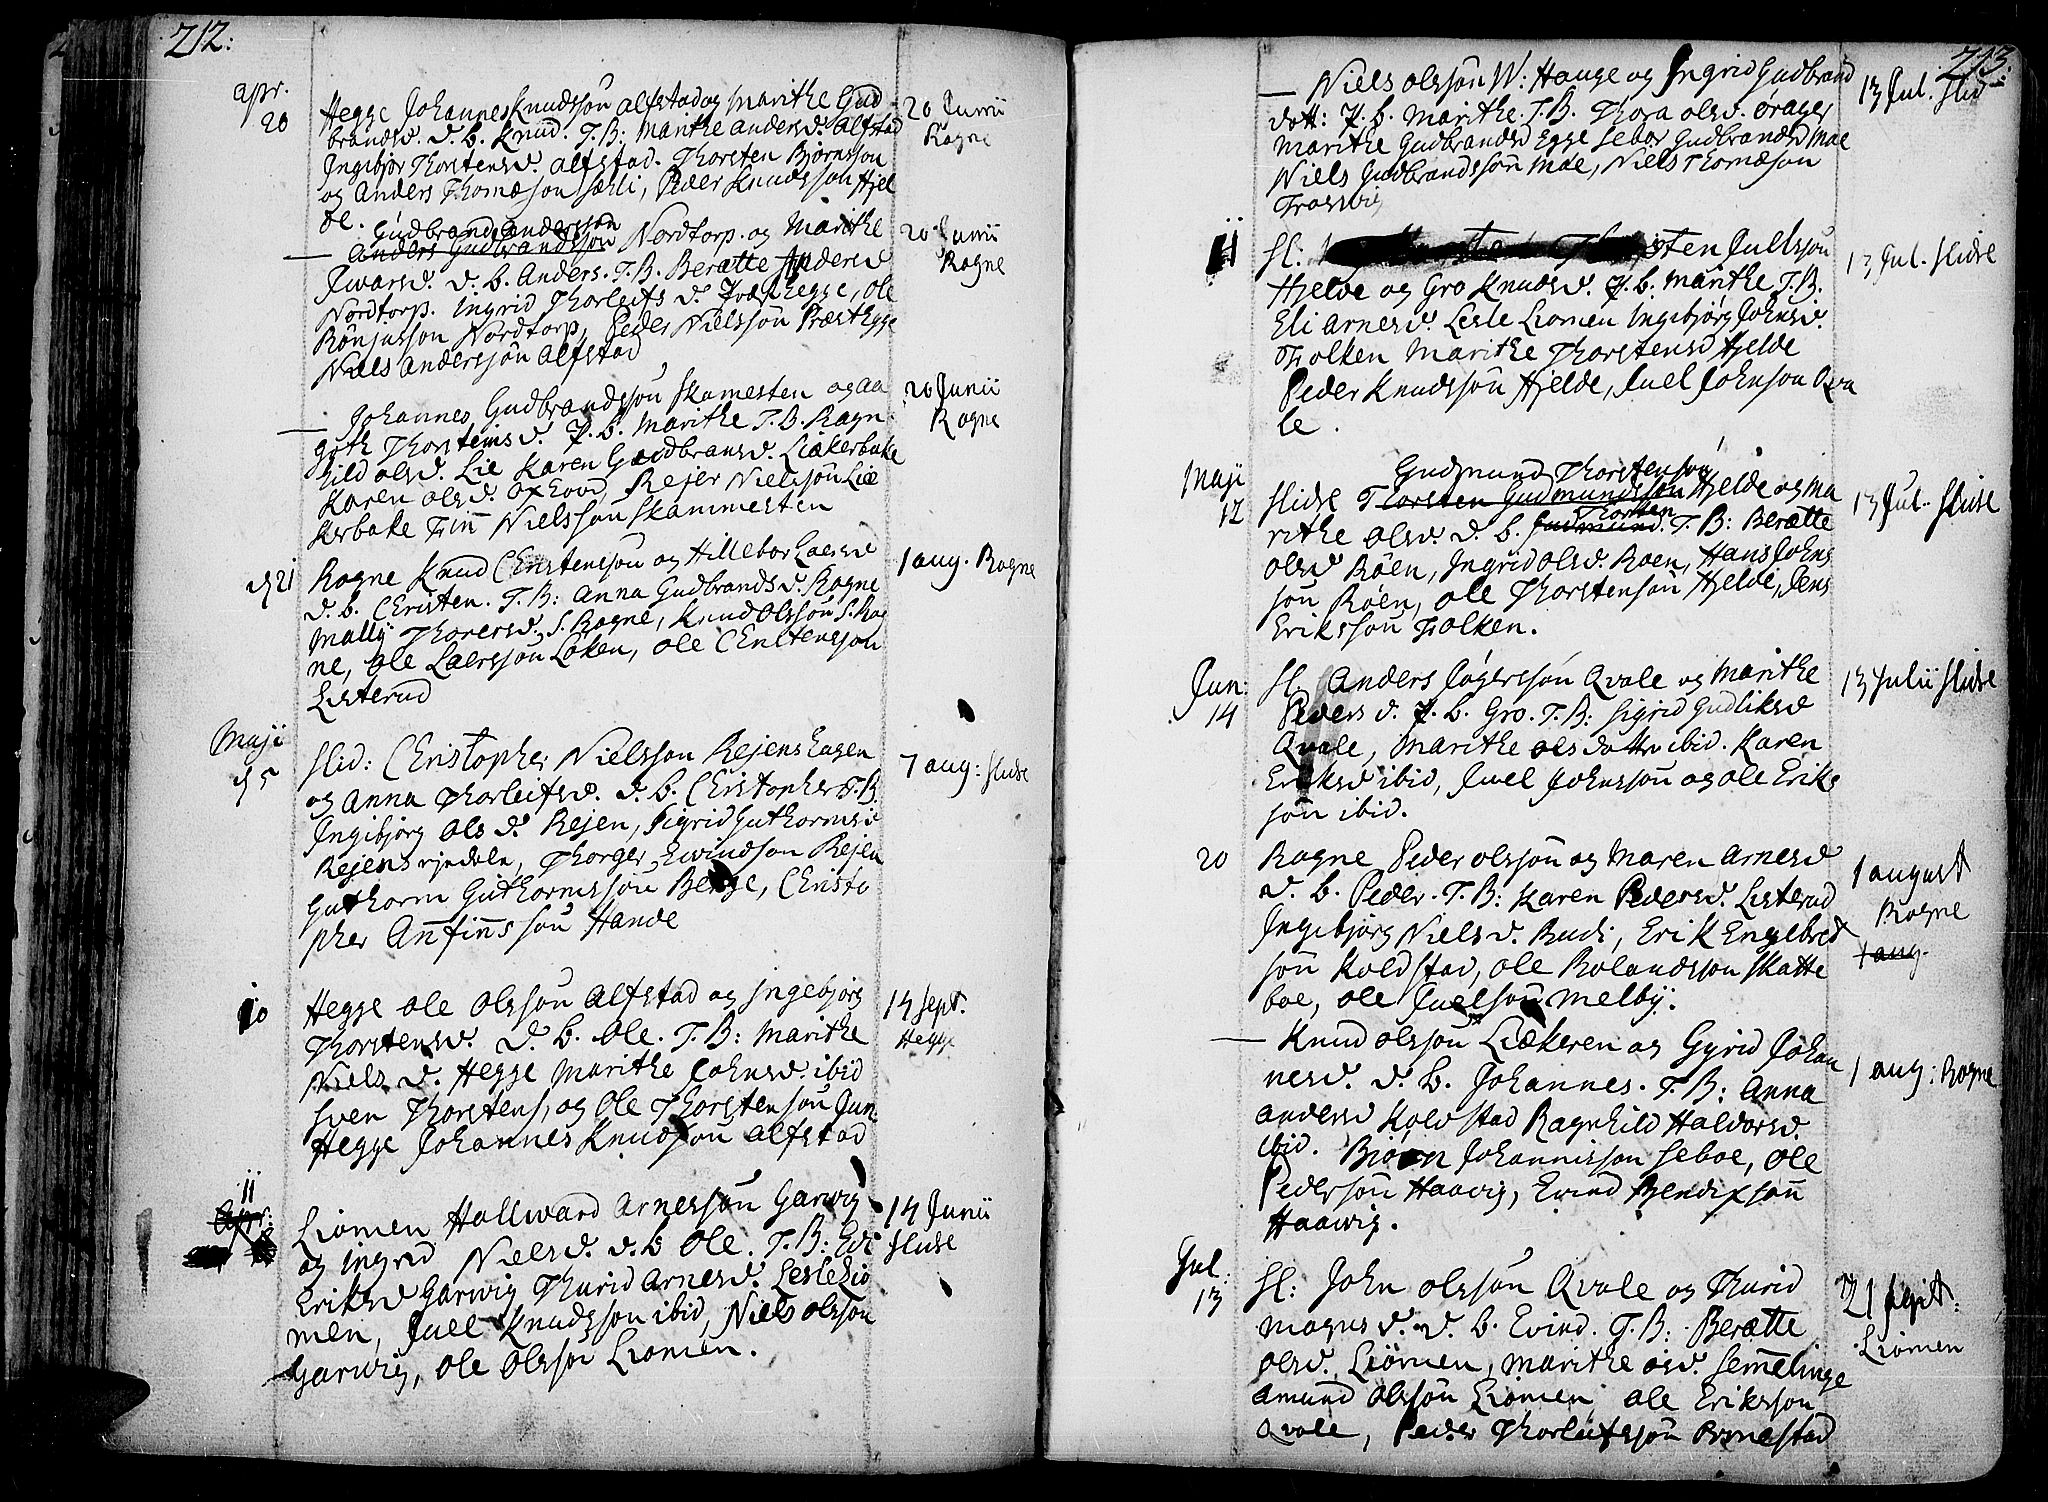 212:
apr.
20
Hegge Johannes Knudssøn Alfstad og Marithe Gud
brandsd. d. b. Knud. T. B: Marithe Andersd. Alfstad
Ingibjør Thorstensd. Alfstad. Thorsten Bjørnssøn
og Anders Thomæson Sæhli, Peder Knudssøn Hjel
de.
20 Junii
Rogne
Gudbrand Anderssøn
— Anders Gudbrandssøn Nordtorp og Marithe
Iwarsd. d. b. Anders. T. B. Beratte Andersd
Nordtorp. Ingrid Thorleifs d. Præsthegge, Ole
Rønjusson Nordtorp, Peder Nielssøn Præsthegge
Niels Anderssøn Alfstad
20 Junii
Rogne
— Johannes Gudbrandssøn Skamesten og Aa
goth Thorsteinsd. P. b. Marithe T. B. Ragn
hild olsd. Lie Karen Gudbransd. Liækerbake
Karen olsd. Oxhovd, Rejer Nielssøn Liæ
kerbake Finn Nielssøn Skammesten
20 Junii
Rogne
d 21
Rogne Knud Christenssøn og Hillebor Laersd
d. b. Christen. T. B: Anna Gudbrandsd. Rogne
Mally Thoresd. S. Rogne, Knud Olssøn S. Rog
ne, Ole Laerssøn Løken, Ole Christenssøn
Listerud
1 aug. Rogne
Maji
d 5
Slid: Christopher Nielssøn Rejenshagen
og Anna Thorleifsd. d. b. Christopher T. B.
Ingibjørg Ols d. Rejen, Sigrid Guthormsd
Rejens ejedeln, Thorger Ewindson Rejen
Guthorm Guthormssøn Berge, Christo
pher Anfinnssøn Hande
7 aug: Slidre
10
Hegge Ole Olssøn Alfstad og Ingebjørg
Thorstensd. d. b. Ole. T. B: Marithe
Niels d. Hegge Marithe Johnsd. ibid
Sven Thorstens, og Ole Thorstenssøn Jun.
Hegge Johannes Knudssøn Alfstad
14 Sept.
Hegge
11
Apr.
Liomen Hallward Arnessøn Garwig
og Ingrid Nielsd. d. b Ole. T. B: Edi
Eriksd Garwig Thurid Arnesd. Lesle Lio
men, Juel Knudssøn ibid, Niels Olssøn
Garwig, Ole Olssøn Liomen.
14 Junii
Slidre
213.
— Niels Olssøn W: Hauge og Ingrid Gudbrand
dott: P. b. Marithe. T. B. Thora olsd. Ørager
Marithe Gudbrandsd Egge Sebor Gudbrandsd Moe
Niels Gudbrandssøn Moe, Niels Thomæson
Trossvig
13 Jul. Slid
11
Sl: Thorsten Juelssøn
Hjelde og Gro Knudsd. P. b. Marithe T. B.
Eli Arnesd. Lesle Liomen Ingibjørg Johnsd.
Folken Marithe Thorstensd Hjelde
Peder Knudssøn Hjelde, Juel Johnson Qva
le.
13 Jul. Slidre
Maji
12
Gudmund Thorstenssøn
Slidre Thorsten Gudmundssøn Hjelde og Ma
Thorsten
rithe Olsd. d. b. Gudmund. T. B: Beratte
Olsd Røen, Ingrid Olsd. Roen, Hans Johns
søn Røen, Ole Thorstenssøn Hjelde, Jens
Erikssøn Folken.
13 Jul. Slidre
Jun
14
Sl. Anders Jøgerssøn Qvale og Marithe
Peders d. P. b. Gro. T. B: Sigrid Gudliksd
Qvale, Marithe ols datter ibid. Karen
Eriksd ibid, Juel Johnssøn og Ole Eriks
søn ibid.
13 Julii Slidre
20
Rogne Peder Olssøn og Maren Arnesd
d. b. Peder. T. B: Karen Pedersd. Listerud
Ingibjørg Nielsd. Rudi, Erik Engelbret
søn Koldstad, Ole Rolandssøn Skatte
boe, Ole Juelssøn Melby.
1 august
Rogne
1 aug.
— Knud Olssøn Liækeren og Gyrid Johan
nesd. d. b. Johannes. T. B: Anna
Andersd Kolvstad Ragnhild Haldorsd.
ibid. Biørn Johannissøn Seboe, Ole
Pederssøn Haavig, Evind Bendixsøn
Haawig.
1 aug: Rogne
Jul:
13
Sl: John Olssøn Qvale og Thurid
Magnsd. d. b. Evind. T. B: Beratte
Olsd. Liomen, Marithe Olsd. Semelinge
Amund Olssøn Liomen, Ole Erikssøn
Qvale, Peder Thorleifssøn Ormestad
21 Sept:
Liomen